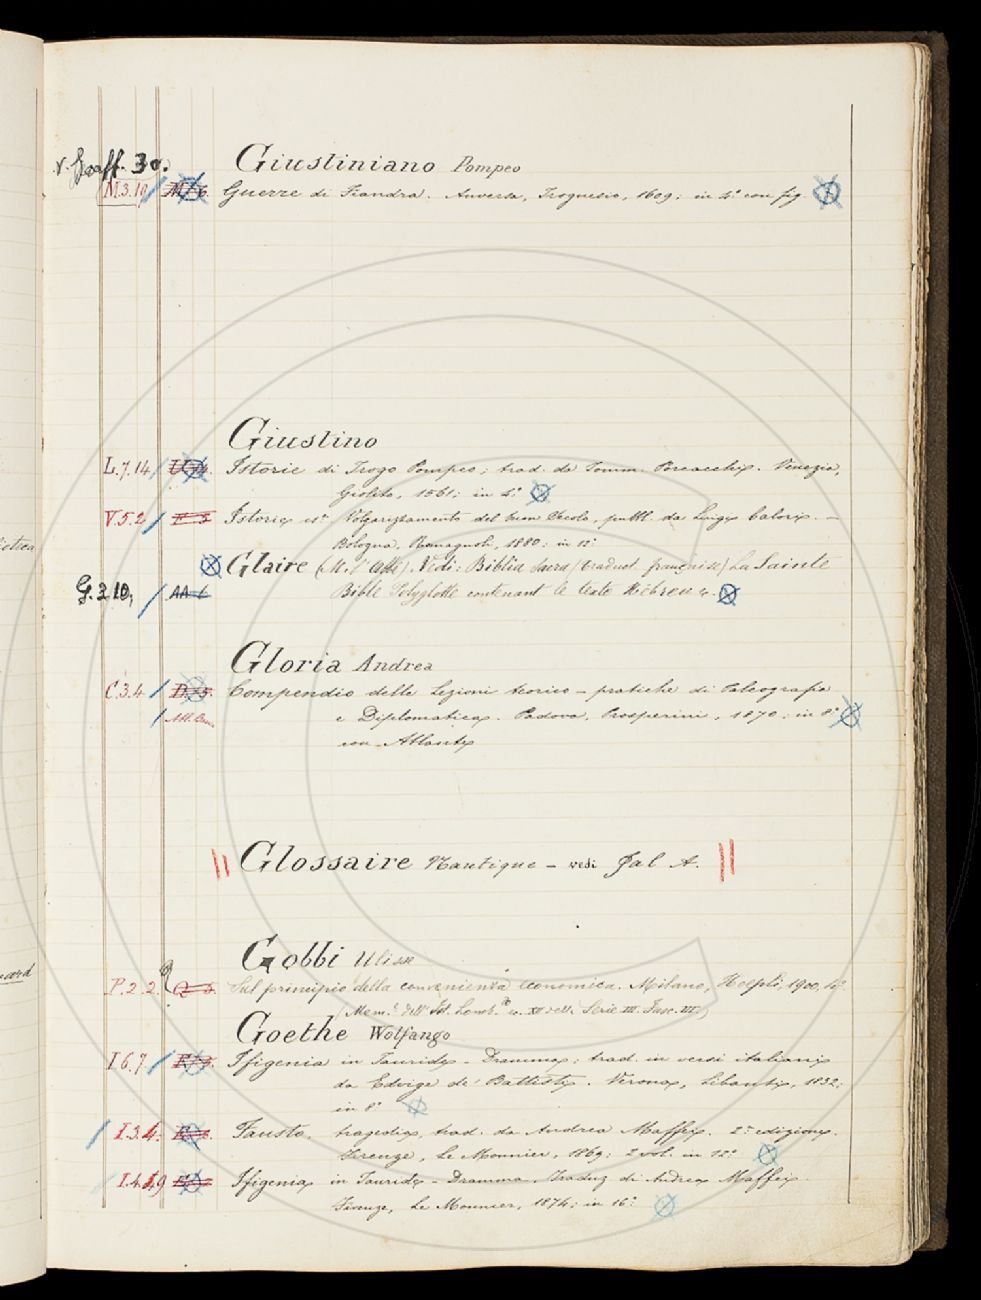 v. Scaff. 30.
Giustiniano Pompeo
M.3.10 Guerre di Fiandra. Anversa, Trognesio, 1609; in 4.° con fig.
Giustino
L.7.14 Istorie di Trogo Pompeo; trad. da Tomm. Porcacchi. Venezia,
Giolito, 1561; in 4.°
V.5.2 Istorie Volgarizzamento del buon Secolo, pubbl. da Luigi Calori. —
Bologna, Romagnoli, 1880; in 12°
Glaire (M. l'Abbé). Vedi: Biblia Sacra (traduct. française) La Sainte
G.2.10, AA-6 Bible Polyglotte contenant le texte Hébreu
Gloria Andrea
C.3.4 D.-5. Compendio delle Lezioni teorico-pratiche di Paleografia
e Diplomatica. Padova, Prosperini, 1870; in 8°
con Atlante
Glossaire Nautique – vedi Jal A.
Gobbi Ulisse
P.2.2. Q-5. Sul principio della convenienza economica. Milano, Hoepli, 1900, 4°.
(Mem.e dell' Ist. Lomb.° v. XII della Serie III. Fasc. III.)
Goethe Wolfango
I.6.7 Ifigenia in Tauride – Dramma; trad. in versi italiani
da Edvige de' Battisti. Verona, Libanti, 1832;
in 8°
I.3.4. Fausto. tragedia, trad. da Andrea Maffei. 2.a edizione.
Firenze, Le Monnier, 1869; 2 vol. in 12°
Ifigenia in Tauride – Dramma. Traduz. di Andrea Maffei.
Firenze, Le Monnier, 1874; in 16°